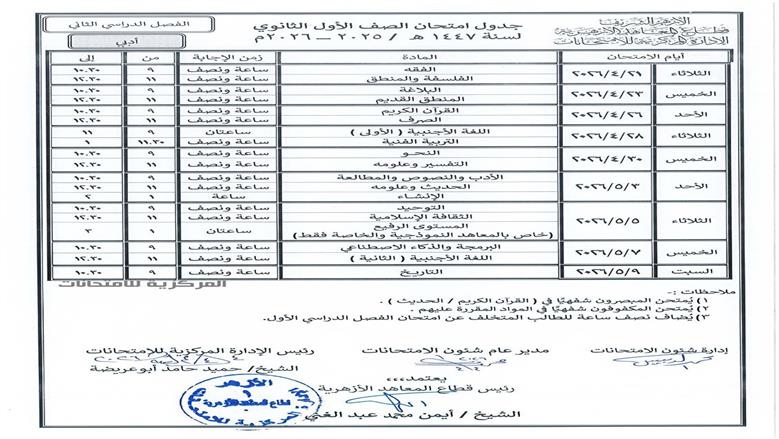 الأزهر الشريف
قطاع المعاهد الأزهرية
الإدارة المركزية للامتحانات
جدول امتحان الصف الأول الثانوي
لسنة ١٤٤٧ هـ / ٢٠٢٥ – ٢٠٢٦م
الفصل الدراسي الثاني
أدبي
أيام الامتحان المادة زمن الإجابة من إلى
الثلاثاء ٢٠٢٦/٤/٢١ الفقه ساعة ونصف ٩ ١٠.٣٠
الفلسفة والمنطق ساعة ونصف ١١ ١٢.٣٠
الخميس ٢٠٢٦/٤/٢٣ البلاغة ساعة ونصف ٩ ١٠.٣٠
المنطق القديم ساعة ونصف ١١ ١٢.٣٠
الأحد ٢٠٢٦/٤/٢٦ القرآن الكريم ساعة ونصف ٩ ١٠.٣٠
الصرف ساعة ونصف ١١ ١٢.٣٠
الثلاثاء ٢٠٢٦/٤/٢٨ اللغة الأجنبية ( الأولى ) ساعتان ٩ ١١
التربية الفنية ساعة ونصف ١١.٣٠ ١
الخميس ٢٠٢٦/٤/٣٠ النحو ساعة ونصف ٩ ١٠.٣٠
التفسير وعلومه ساعة ونصف ١١ ١٢.٣٠
الأحد ٢٠٢٦/٥/٣ الأدب والنصوص والمطالعة ساعة ونصف ٩ ١٠.٣٠
الحديث وعلومه ساعة ونصف ١١ ١٢.٣٠
الإنشاء ساعة ١ ٢
الثلاثاء ٢٠٢٦/٥/٥ التوحيد ساعة ونصف ٩ ١٠.٣٠
الثقافة الإسلامية ساعة ونصف ١١ ١٢.٣٠
المستوى الرفيع ساعتان ١ ٣
(خاص بالمعاهد النموذجية والخاصة فقط)
الخميس ٢٠٢٦/٥/٧ البرمجة والذكاء الاصطناعي ساعة ونصف ٩ ١٠.٣٠
اللغة الأجنبية ( الثانية ) ساعة ونصف ١١ ١٢.٣٠
السبت ٢٠٢٦/٥/٩ التاريخ ساعة ونصف ٩ ١٠.٣٠
المركزية للامتحانات
ملاحظات :-
١) يُمتحن المبصرون شفهيًا في ( القرآن الكريم / الحديث ) .
٢) يُمتحن المكفوفون شفهيًا في المواد المقررة عليهم .
٣) يُضاف نصف ساعة للطالب المتخلف عن امتحان الفصل الدراسي الأول.
إدارة شئون الامتحانات
مدير عام شئون الامتحانات
رئيس الإدارة المركزية للامتحانات
الشيخ/ حميد حامد أبوعريضة
يعتمد،،،
رئيس قطاع المعاهد الأزهرية
الشيخ / أيمن محمد عبد الغني
الأزهر
قطاع المعاهد الأزهرية